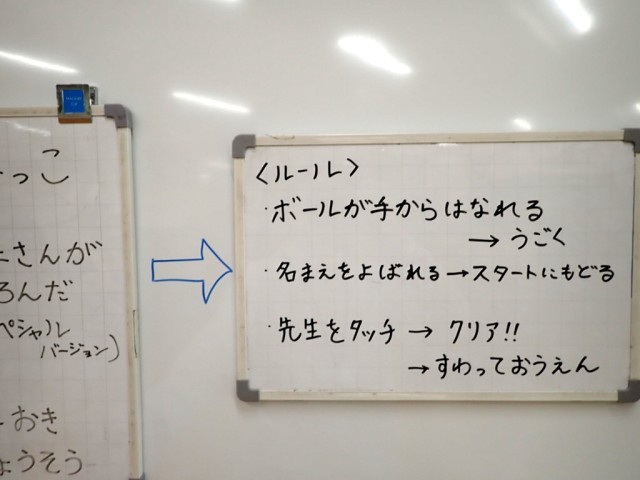 っこ
さんが
ろんだ
ペシャル
バージョン)
おき
ょうそう
<ルール>
・ボールが手からはなれる
→うごく
・名まえをよばれる→スタートにもどる
・先生をタッチ→クリア!!
→すわっておうえん